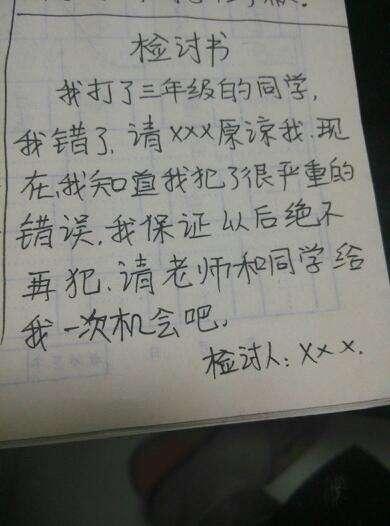 检讨书
我打了三年级的同学,
我错了,请XXX原谅我.现
在,我知道我犯了很严重的
错误,我保证以后绝不
再犯.请老师和同学给
我一次机会吧.
检讨人:XXX.